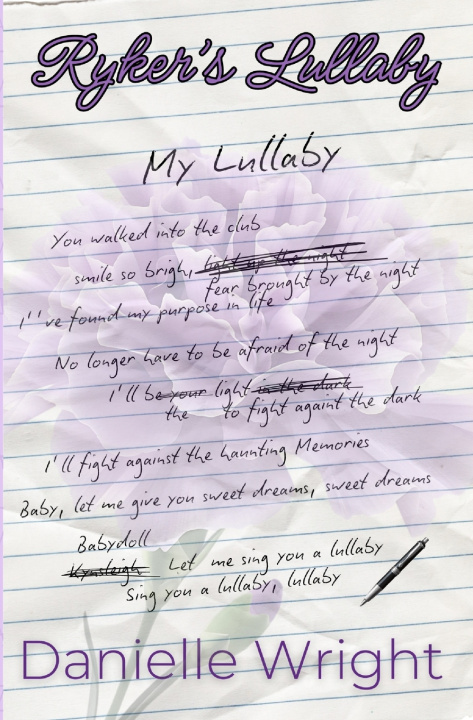 Ryker's Lullaby
My Lullaby
You walked into the club
smile so brigh, light up the night
fear brought by the night
I''ve found my purpose in life
No longer have to be afraid of the night
I'll be your light in the dark
the to fight againt the dark
I'll fight against the haunting Memories
Baby, let me give you sweet dreams, sweet dreams
Babydoll
Kynsleigh Let me sing you a lullaby
Sing you a lullaby, lullaby
Danielle Wright